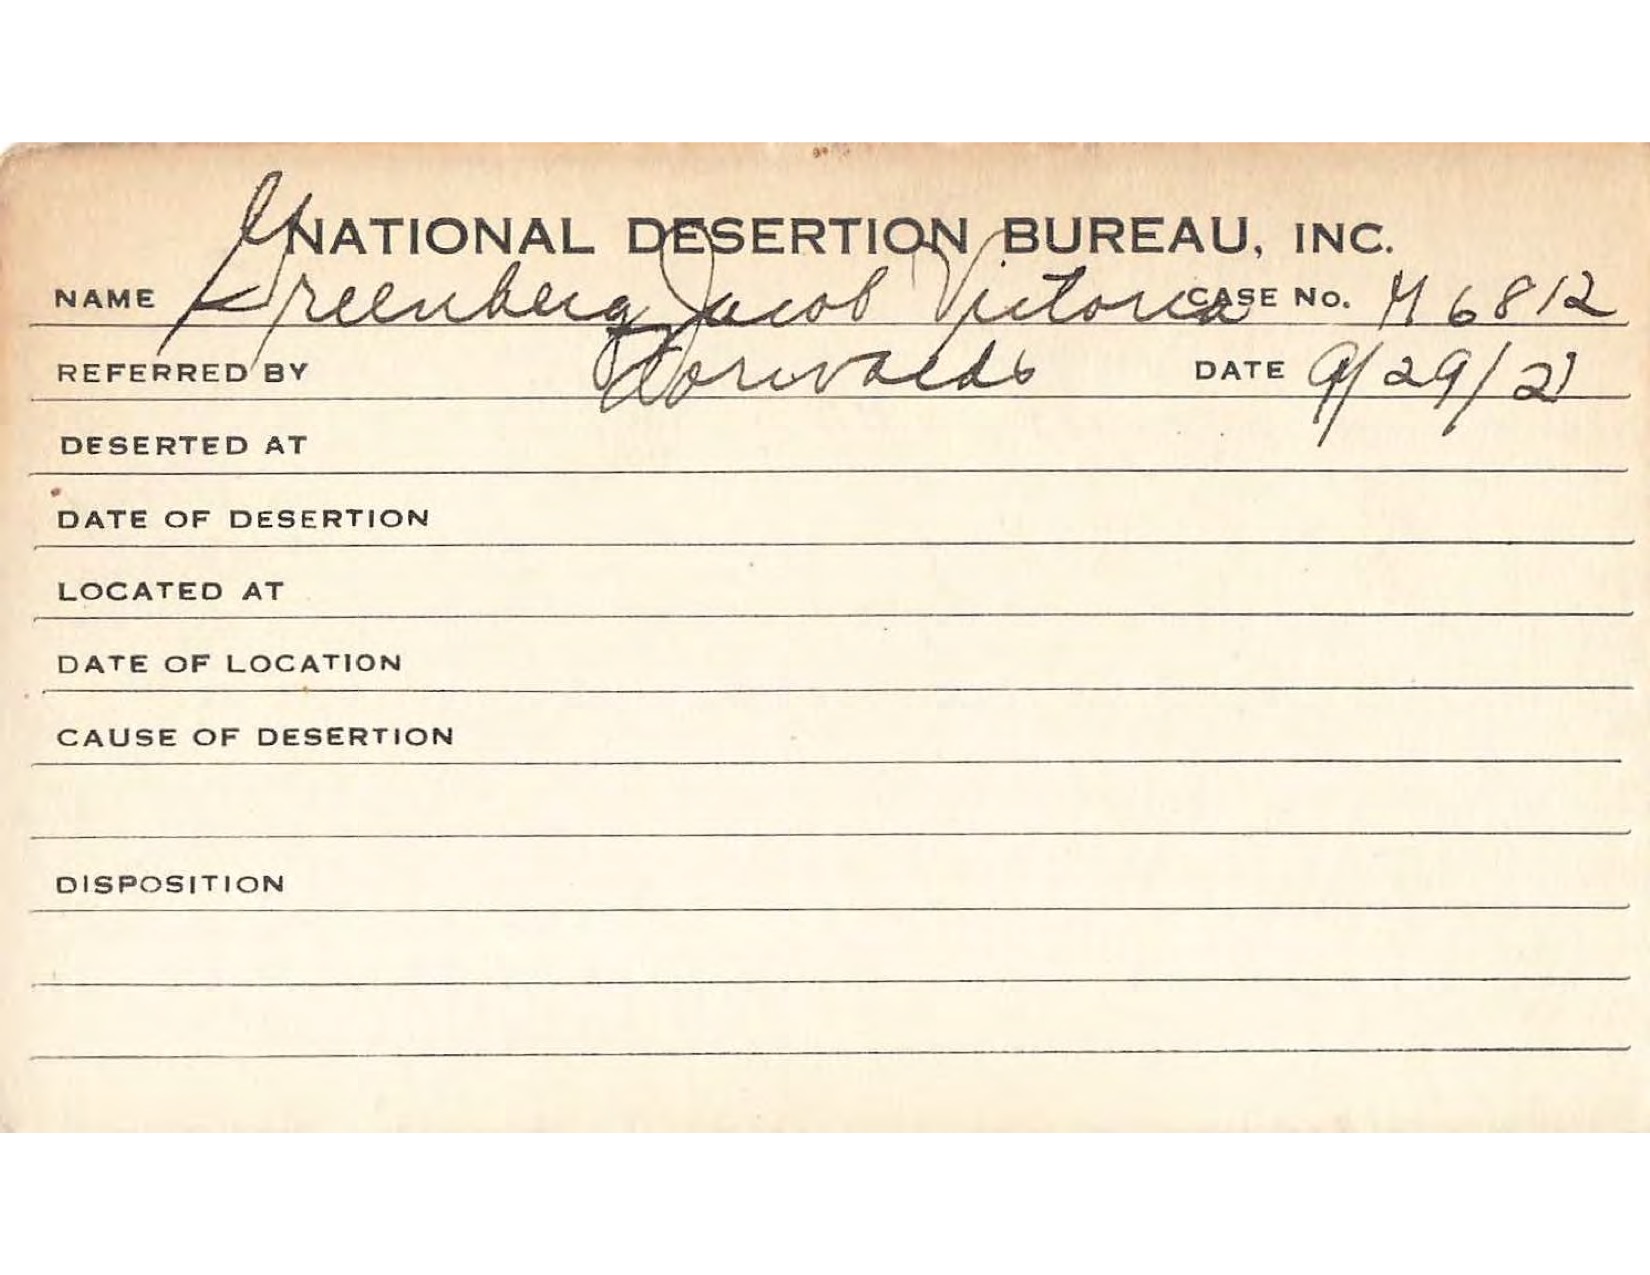 NATIONAL DESERTION BUREAU, INC.
NAME Greenberg Jacob Victoria CASE No. M 6812
REFERRED BY Forwards DATE 9/29/21
DESERTED AT
DATE OF DESERTION
LOCATED AT
DATE OF LOCATION
CAUSE OF DESERTION
DISPOSITION